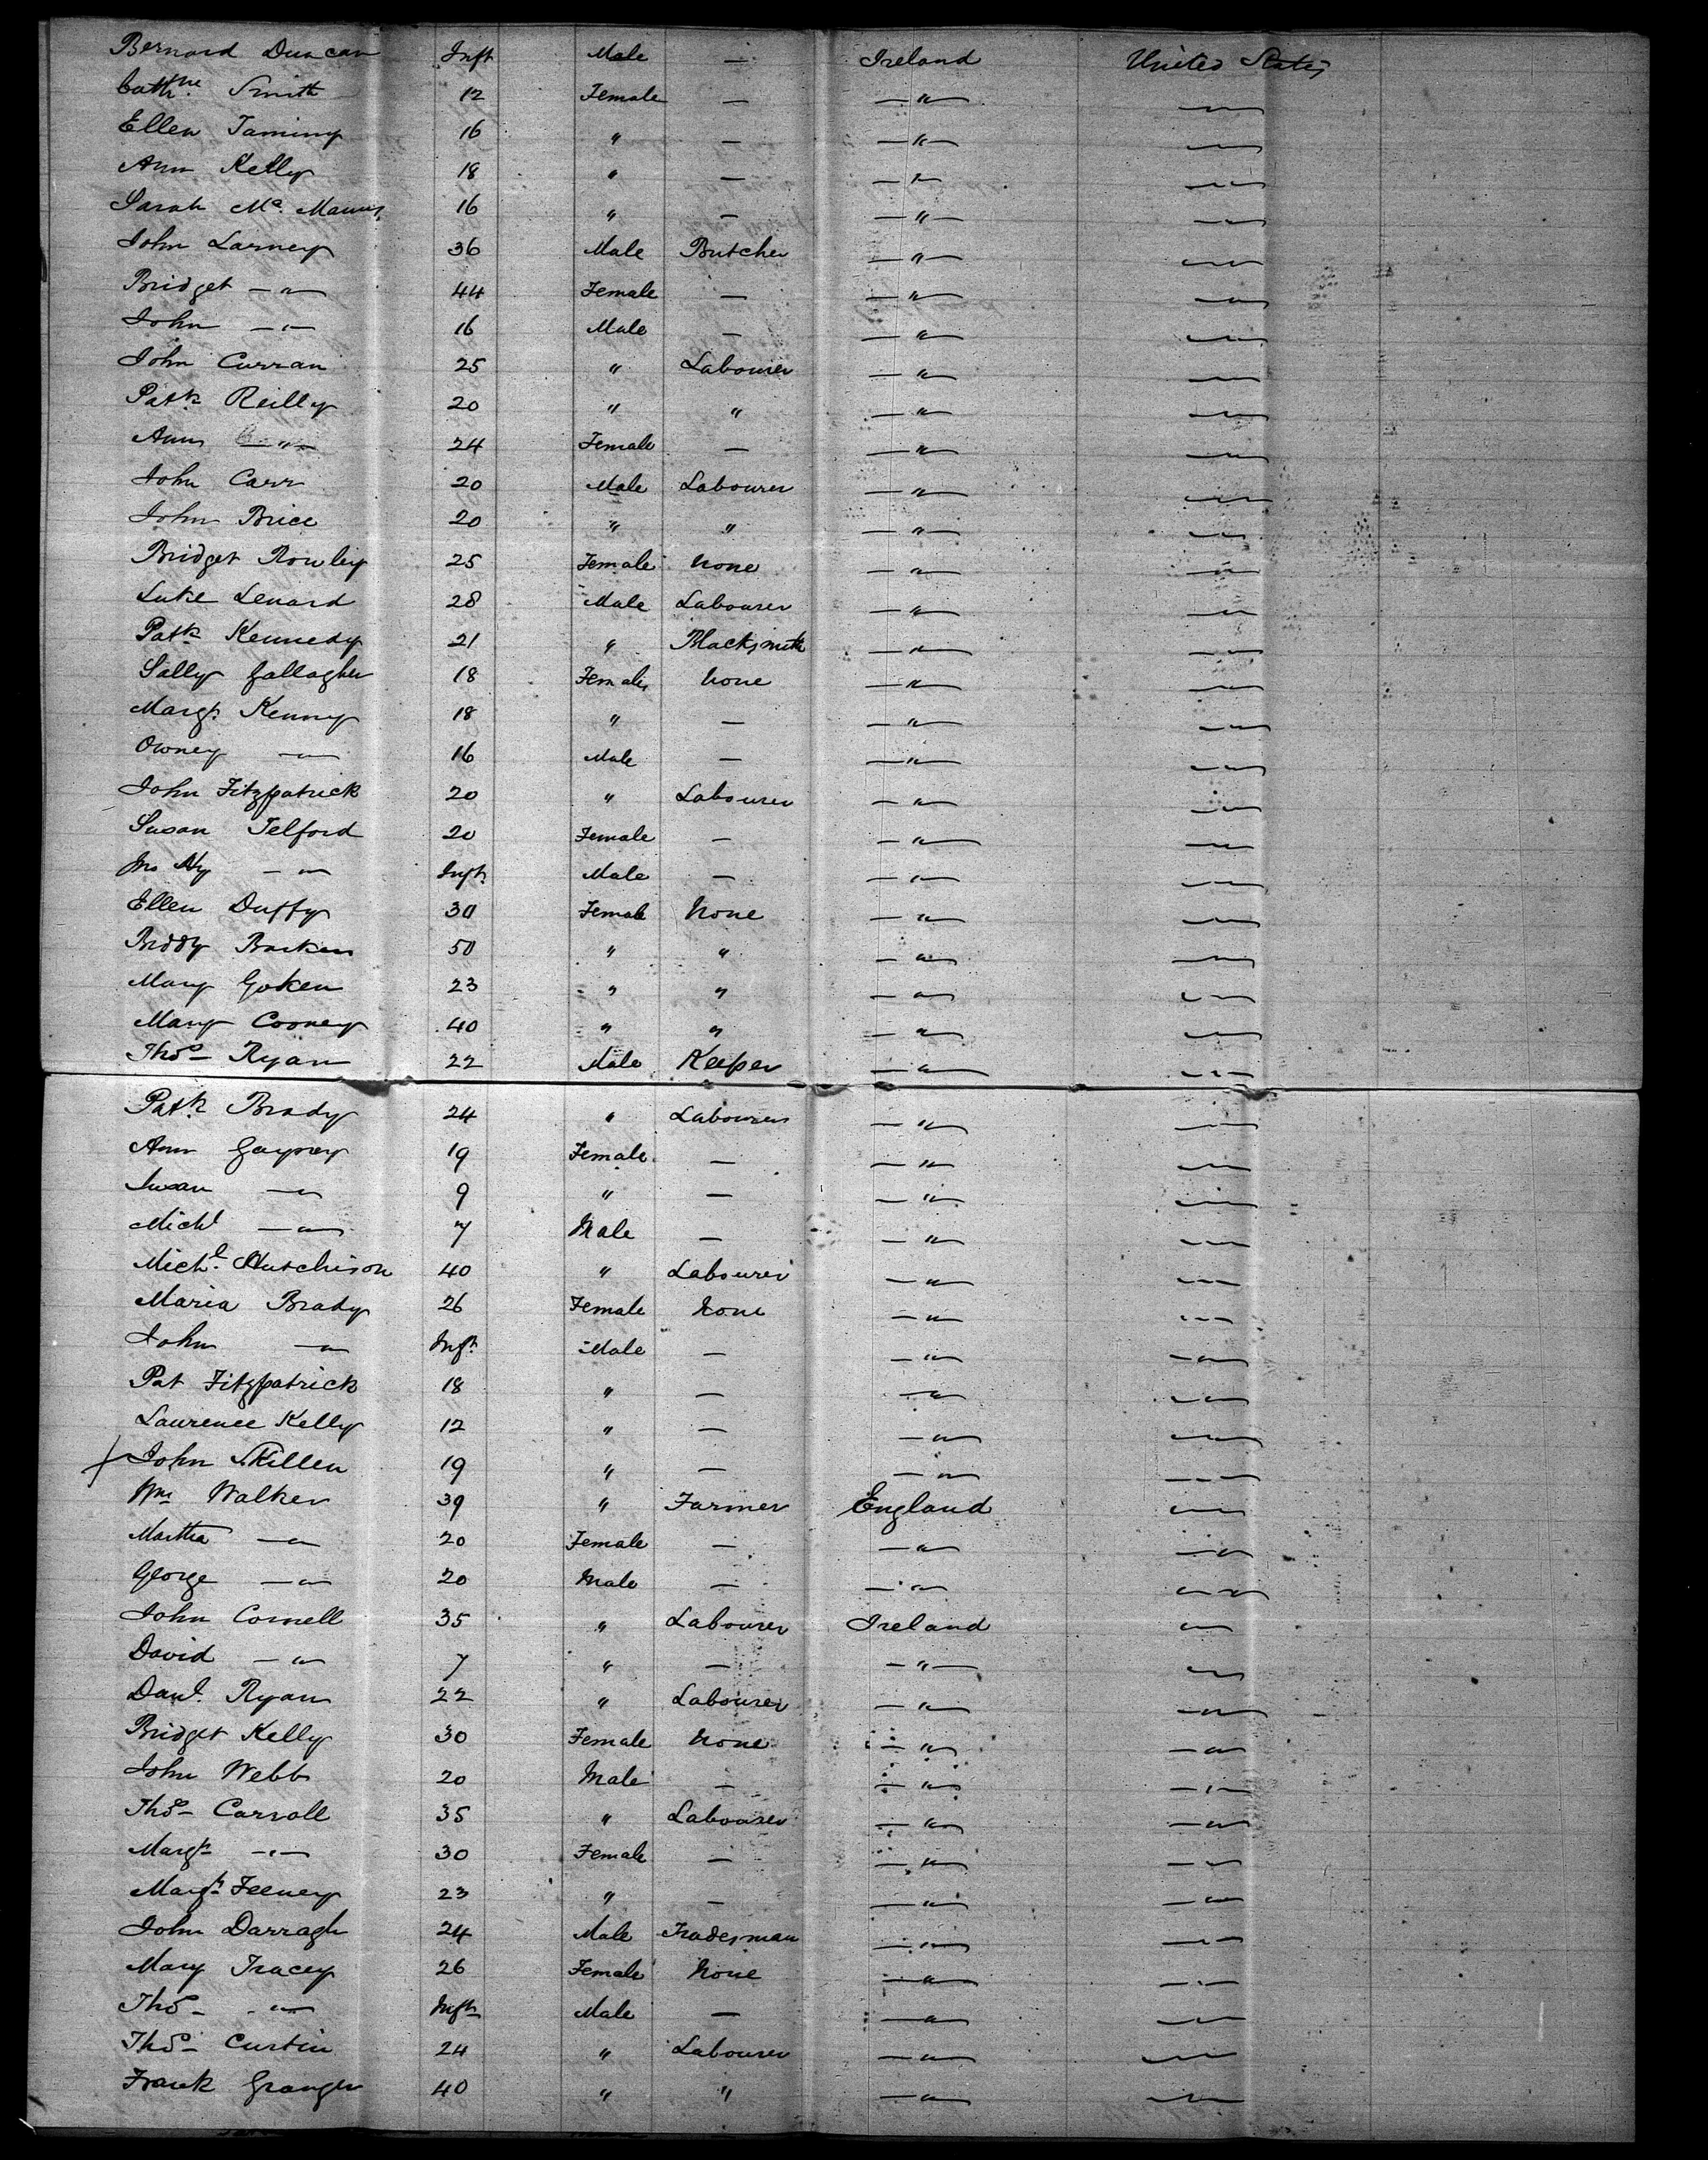 Bernard Duncan Inft Male — Ireland United States
Cathne. Smith 12 Female — —"— —"—
Ellen Taminy 16 " — —"— —"—
Ann Kelly 18 " — —"— —"—
Sarah Mc. Manus 16 " — —"— —"—
John Larney 36 Male Butcher —"— —"—
Bridget —"— 44 Female — —"— —"—
John —"— 16 Male — —"— —"—
John Curran 25 " Labourer —"— —"—
Patk Reilly 20 " " —"— —"—
Ann —"— 24 Female — —"— —"—
John Carr 20 Male Labourer —"— —"—
John Brice 20 " " —"— —"—
Bridget Rowley 25 Female None —"— —"—
Luke Lenard 28 Male Labourer —"— —"—
Patk Kennedy 21 " Blacksmith —"— —"—
Sally Gallagher 18 Female None —"— —"—
Margt. Kenny 18 " — —"— —"—
Owney —"— 16 Male — —"— —"—
John Fitzpatrick 20 " Labourer —"— —"—
Susan Telford 20 Female — —"— —"—
Jno Hy —"— Inft. Male — —"— —"—
Ellen Duffy 30 Female None —"— —"—
Biddy Barken 50 " " —"— —"—
Mary Goken 23 " " —"— —"—
Mary Cooney 40 " " —"— —"—
Thos Ryan 22 Male Keeper —"— —"—
Patk Brady 24 " Labourer —"— —"—
Ann Gayney 19 Female — —"— —"—
Susan —"— 9 " — —"— —"—
Michl —"— 7 Male — —"— —"—
Michl. Hutchison 40 " Labourer —"— —"—
Maria Brady 26 Female None —"— —"—
John —"— Inft. Male — —"— —"—
Pat Fitzpatrick 18 " — —"— —"—
Laurence Kelly 12 " — —"— —"—
John Skillen 19 " — —"— —"—
Wm Walker 39 " Farmer England —"—
Martha —"— 20 Female — —"— —"—
George —"— 20 Male — —"— —"—
John Cornell 35 " Labourer Ireland —"—
David —"— 7 " — —"— —"—
Danl. Ryan 22 " Labourer —"— —"—
Bridget Kelly 30 Female None —"— —"—
John Webb 20 Male — —"— —"—
Thos Carroll 35 " Labourer —"— —"—
Margt —"— 30 Female — —"— —"—
Margt Feeney 23 " — —"— —"—
John Darragh 24 Male Tradesman —"— —"—
Mary Tracey 26 Female None —"— —"—
Thos —"— Inft Male — —"— —"—
Thos Curtin 24 " Labourer —"— —"—
Frank Granger 40 " " —"— —"—